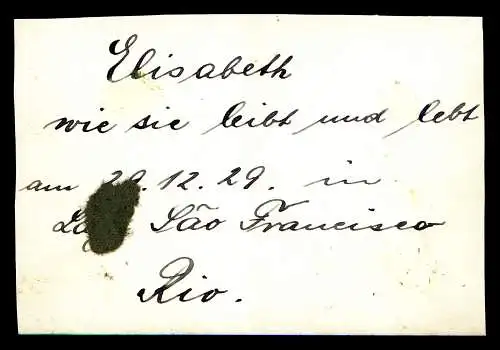 Elisabeth
wie sie leibt und lebt
am 29.12.29. in
São Francisco
Rio.